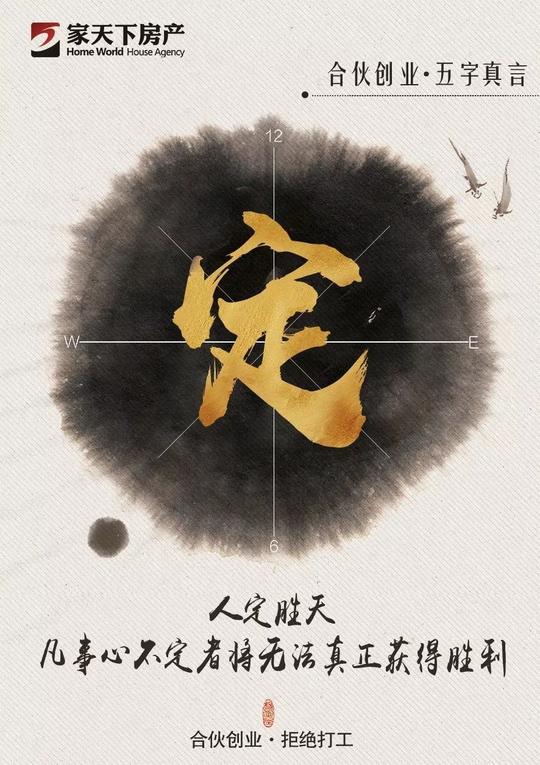 家天下房产
Home World House Agency
合伙创业·五字真言
12
定
W
E
6
人定胜天
凡事心不定者将无法真正获得胜利
合伙创业·拒绝打工